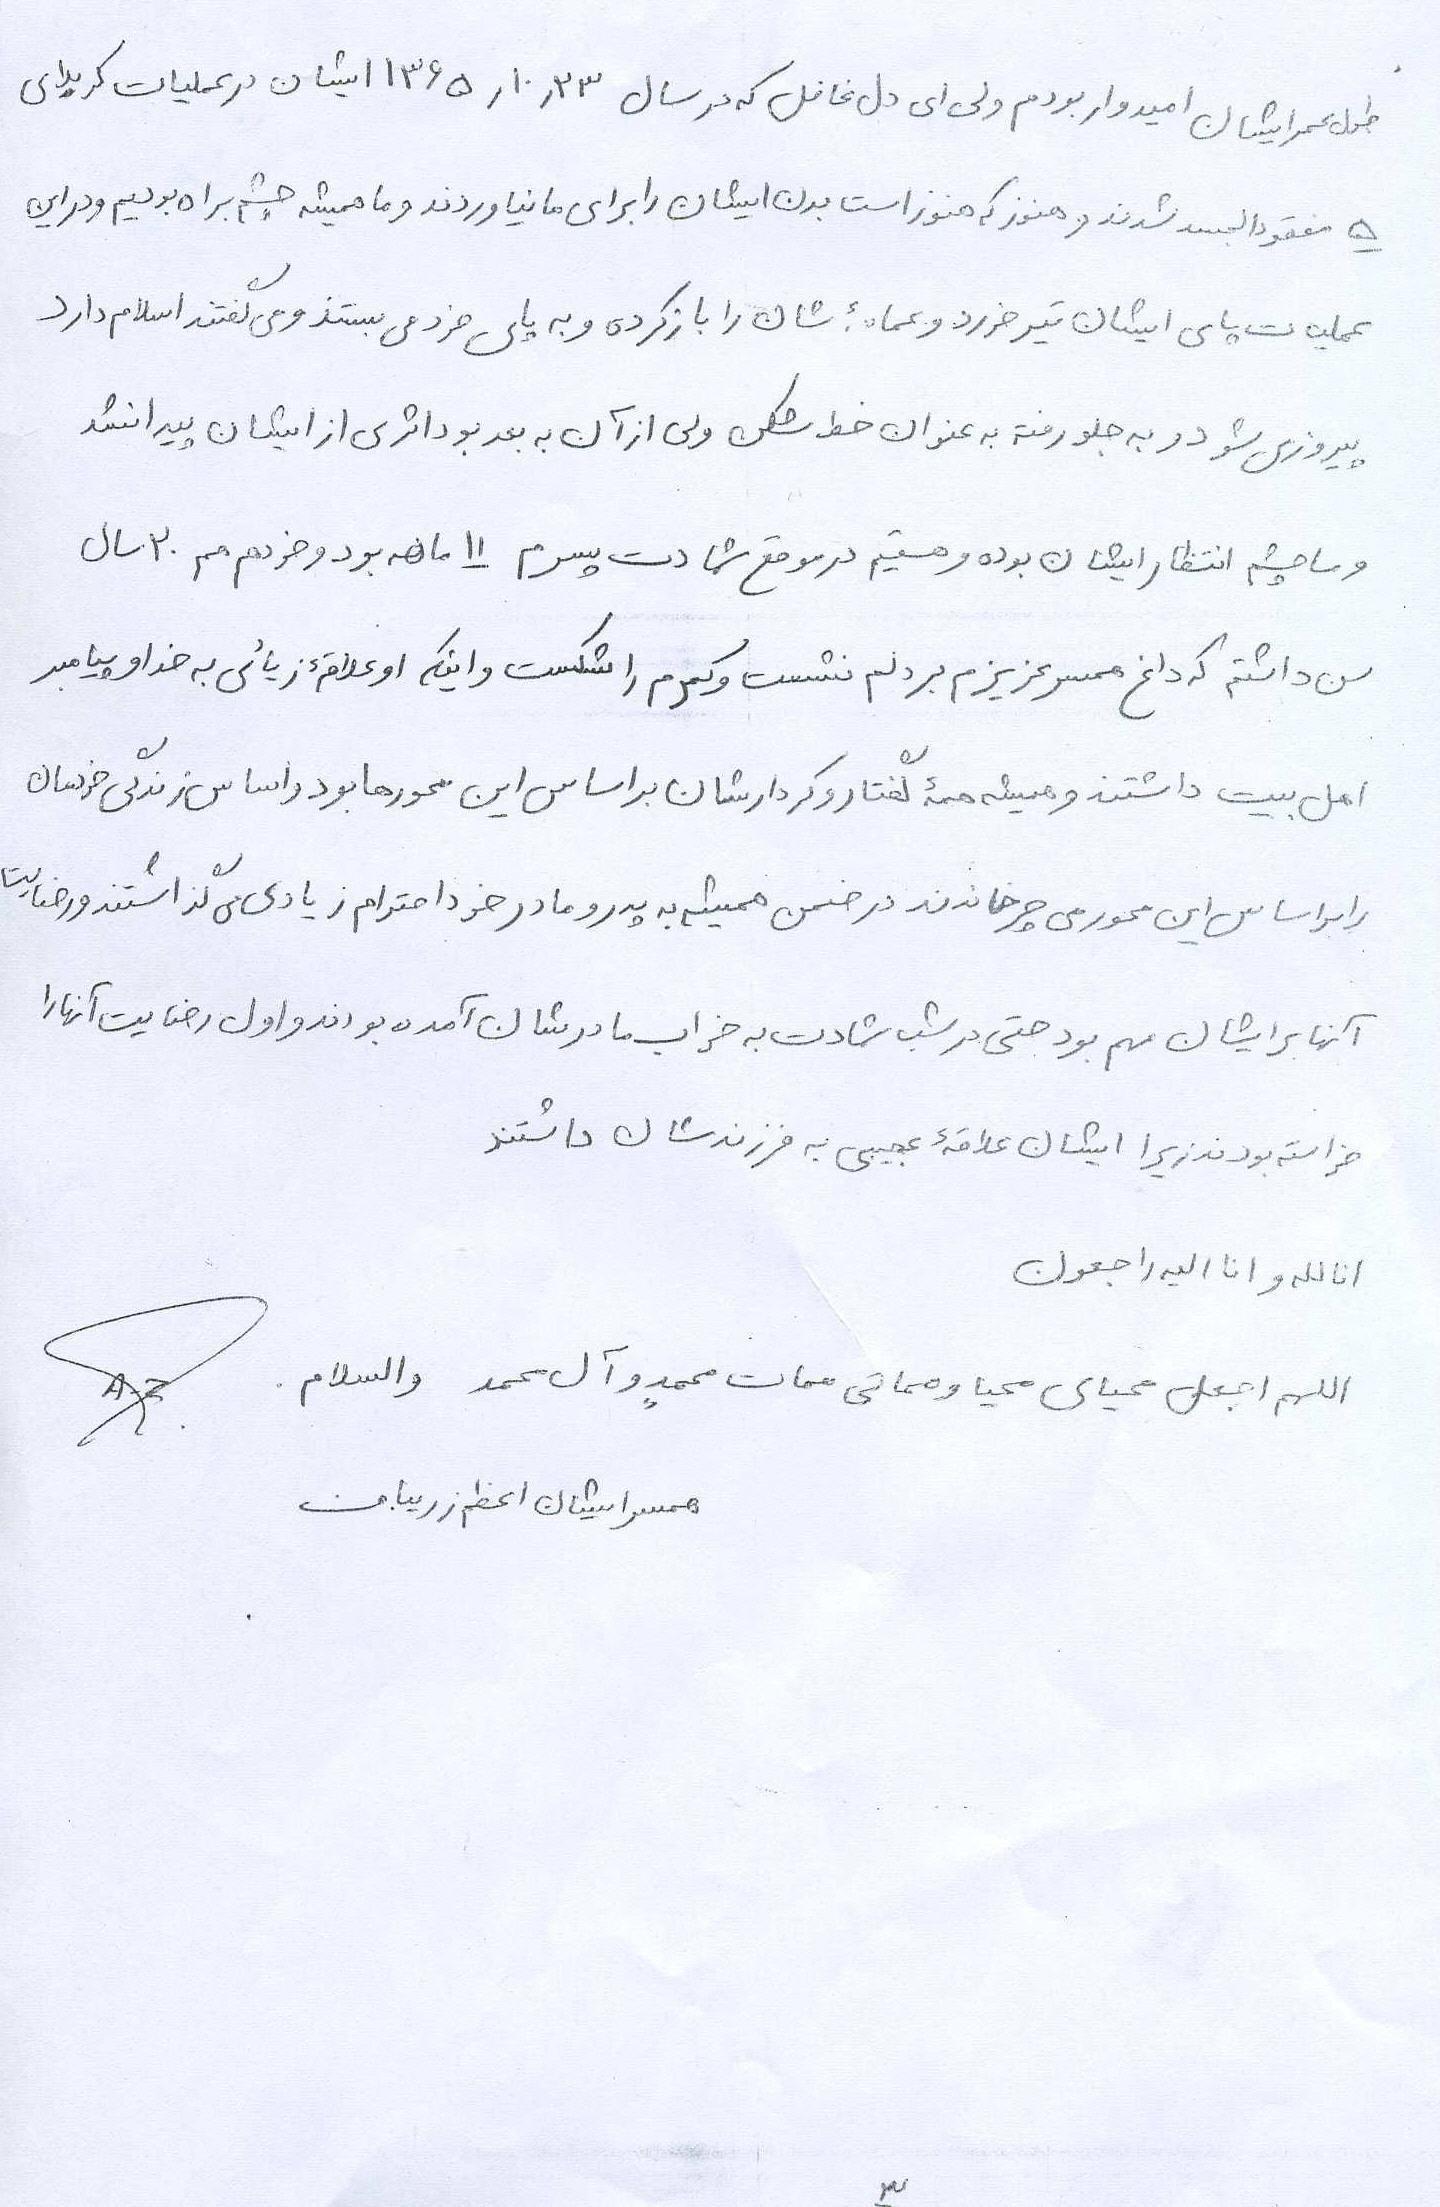 طول عمر ایشان امیدوار بودم ولی ای دل غافل که در سال ۲۳ر۱۰ر۱۳۶۵ ایشان در عملیات کربلای
۵ مفقودالجسد شدند و هنوز که هنوز است بدن ایشان را برای ما نیاوردند و ما همیشه چشم براه بودیم و در این
عملیات پای ایشان تیر خورد و عمامهٔ شان را باز کرده و به پای خود می بستند و می گفتند اسلام دارد
پیروزی شود و به جلو رفته به عنوان خط شکن ولی از آن به بعد بود اثری از ایشان پیدا نشد
و ما چشم انتظار ایشان بوده و هستیم در موقع شهادت پسرم ۱۱ ماهه بود و خودم هم ۲۰ سال
سن داشتم که داغ همسر عزیزم بر دلم نشست و کمرم را شکست و اینکه او علاقهٔ زیائی به خدا و پیامبر
اهل بیت داشتند و همیشه همهٔ گفتار و کردارشان بر اساس این محورها بود و اساس زندگی خودشان
را براساس این محور می چرخاندند در ضمن همیشه به پدر و مادر خود احترام زیادی می گذاشتند و رضایت
آنها برایشان مهم بود حتی در شب شهادت به خواب مادرشان آمده بودند و اول رضایت آنها را
خواسته بودند زیرا ایشان علاقهٔ عجیبی به فرزندشان داشتند
انا لله و انا الیه راجعون
اللهم اجعل محیای محیا و مماتی ممات محمدٍ و آل محمد والسلام .
همسر ایشان اعظم زریباین
۳